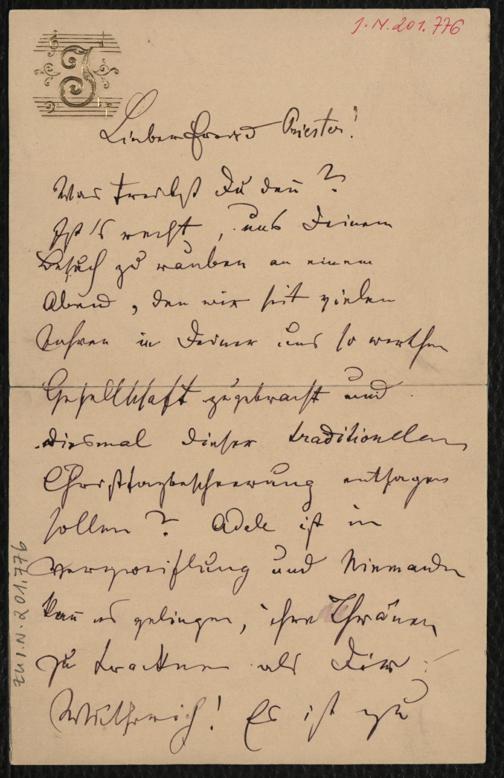 J. N. 201.776
Lieber Freund Priester!
Was treibst Du den̅?
Ist's recht, uns Deinem
Besuch zu rauben an einem
Abend, den wir seit vielen
Jahren in Deiner uns so werthen
Gesellschaft zugebracht und
diesmal dieser traditionellen
Christtagbescheerung entsagen
sollen? Adele ist in
Verzweiflung und Niemanden
kan̅ es gelingen, ihre Thränen
zu trocknen als Dir
Wütherich! Es ist zu
zu I.N. 201.776